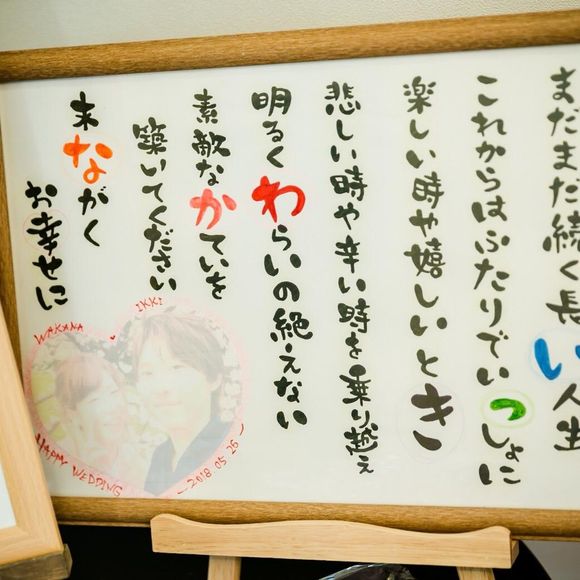 まだまだ続く長い人生
これからはふたりでいっしょに
楽しい時や嬉しいとき
悲しい時や辛い時を乗り越え
明るくわらいの絶えない
素敵なかていを
築いてください
末ながく
お幸せに
WAKANA
IKKI
HAPPY WEDDING
2018.05.26